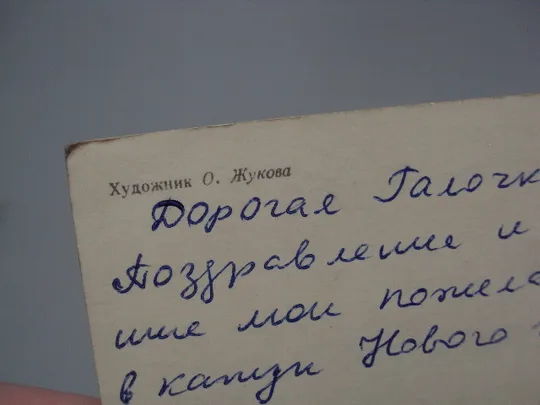 Художник О. Жукова
Дорогая Галочк
Поздравление и
ше мои пожела
в канун Нового